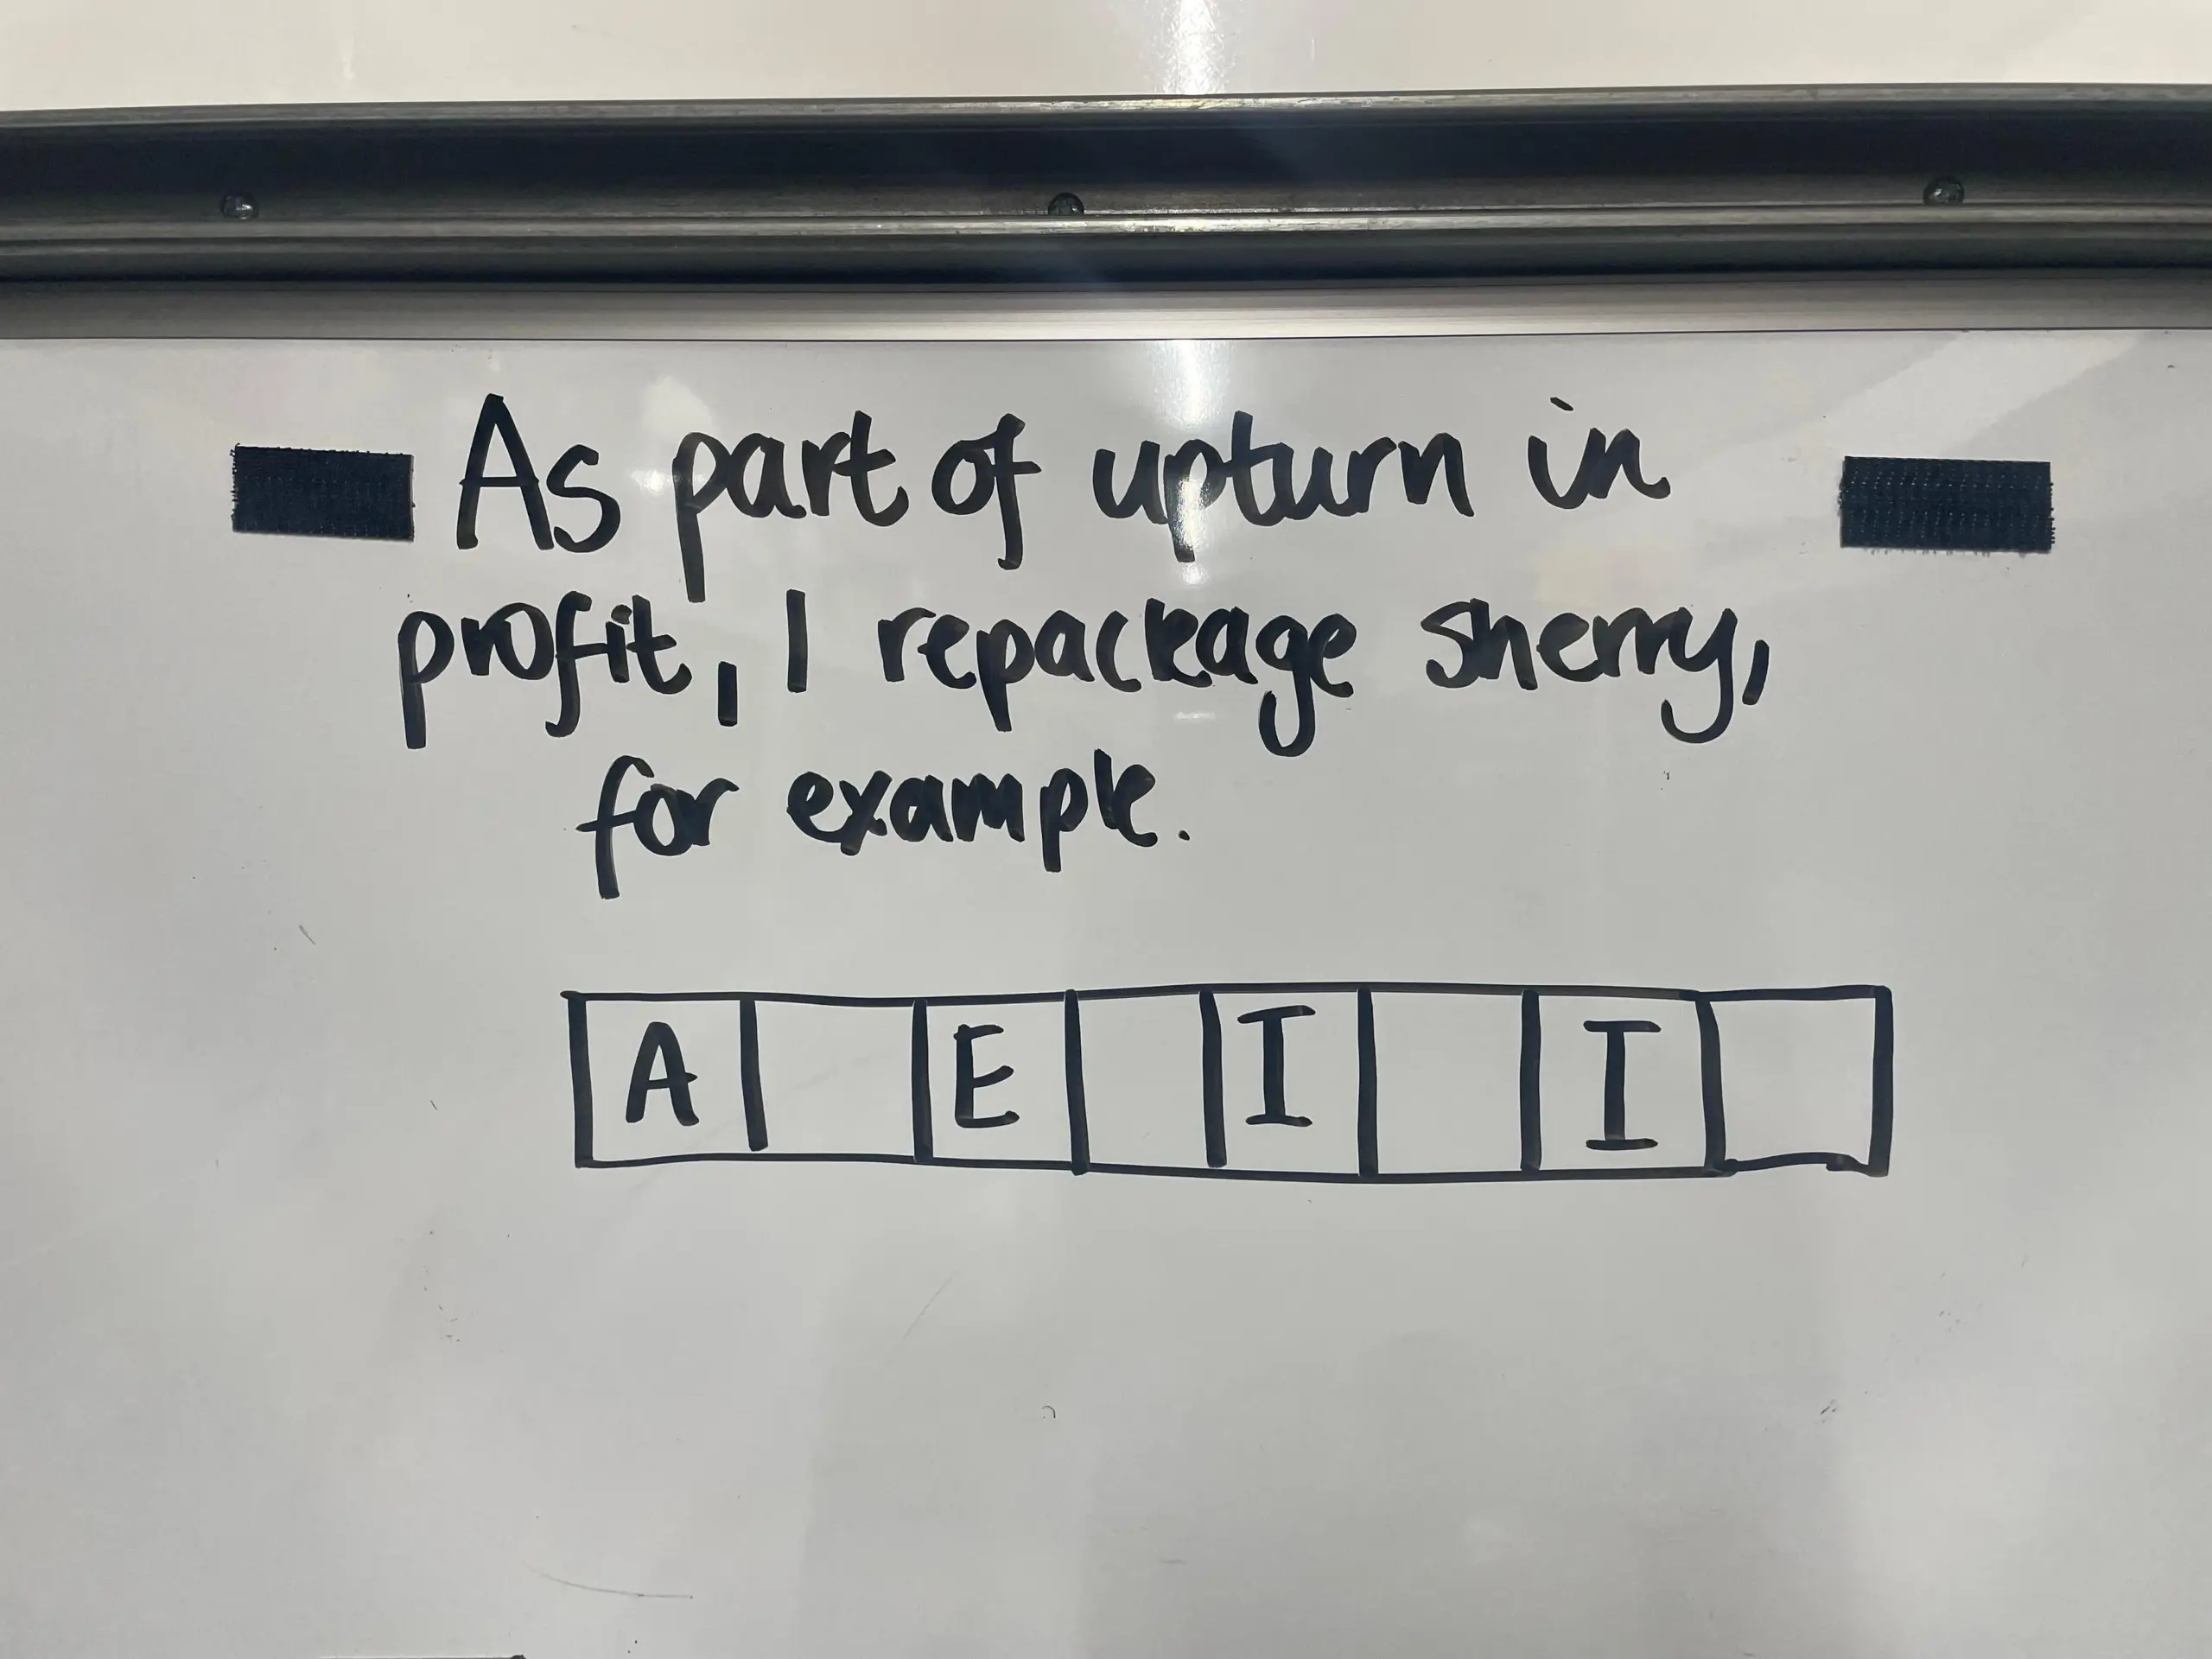 As part of upturn in
profit, I repackage sherry,
for example.
A E I I